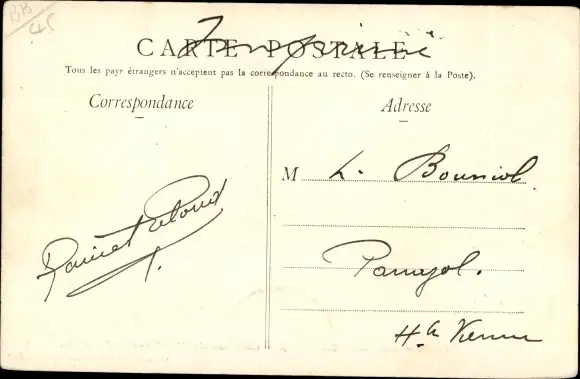 BB
45
CARTE POSTALE
Imprimé
Tous les pays étrangers n'acceptent pas la correspondance au recto. (Se renseigner à la Poste).
Correspondance
Adresse
M L. Boursiol
Panazol.
Hte Vienne